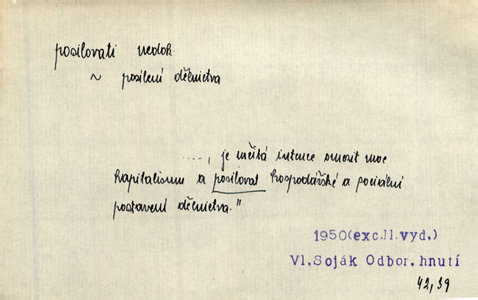 posilovati nedok.
~ posílení dělnictva
....., je určitá intence omezit moc
kapitalismu a posilovat hospodářské a sociální
postavení dělnictva."
1950(exc.II.vyd.)
Vl.Soják Odbor.hnutí
42,39